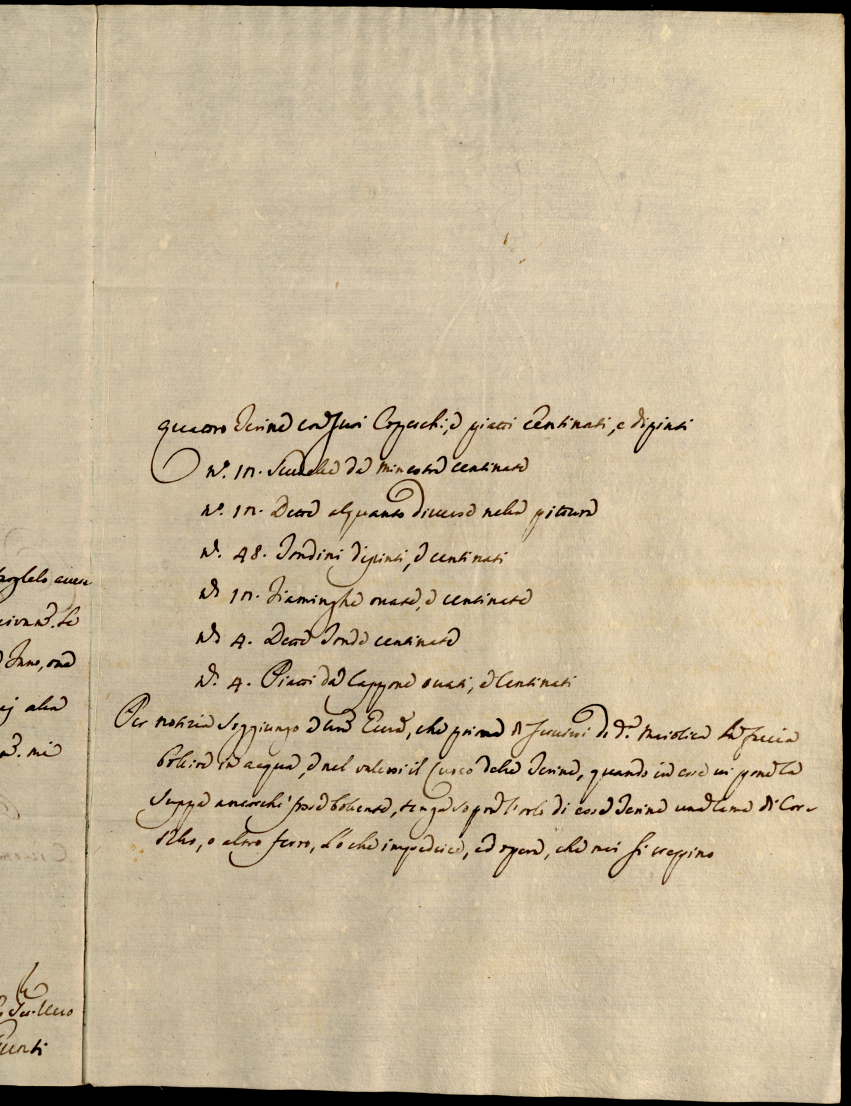 quattro Terine con suoi Coperchi, e piatti Centinati, e dipinti
N.º 12. Scudelle da minestra centinate
N.º 12. Dette alquanto diverse nella pittura
N.º 48. Tondini dipinti, e centinati
N.º 12. Fiaminghe ovate, e centinate
N.º 4. Dette Tonde centinate
N.º 4. Piatti da Cappone ovati, e Centinati
Per notizia soggiungo, che prima di servirsi di d.ª Maiolica la faccia
bollire in acqua, e nel valersi il Cuoco delle Terine, quando in esse vi pone la
suppa ancorchè fosse bollente, tenga sopra l'orlo di esse Terine una lama di Cor-
tello, o altro ferro, lo che impedisce, ed opera, che mai si creppino
roglelo
Inno, ond
alla
mi